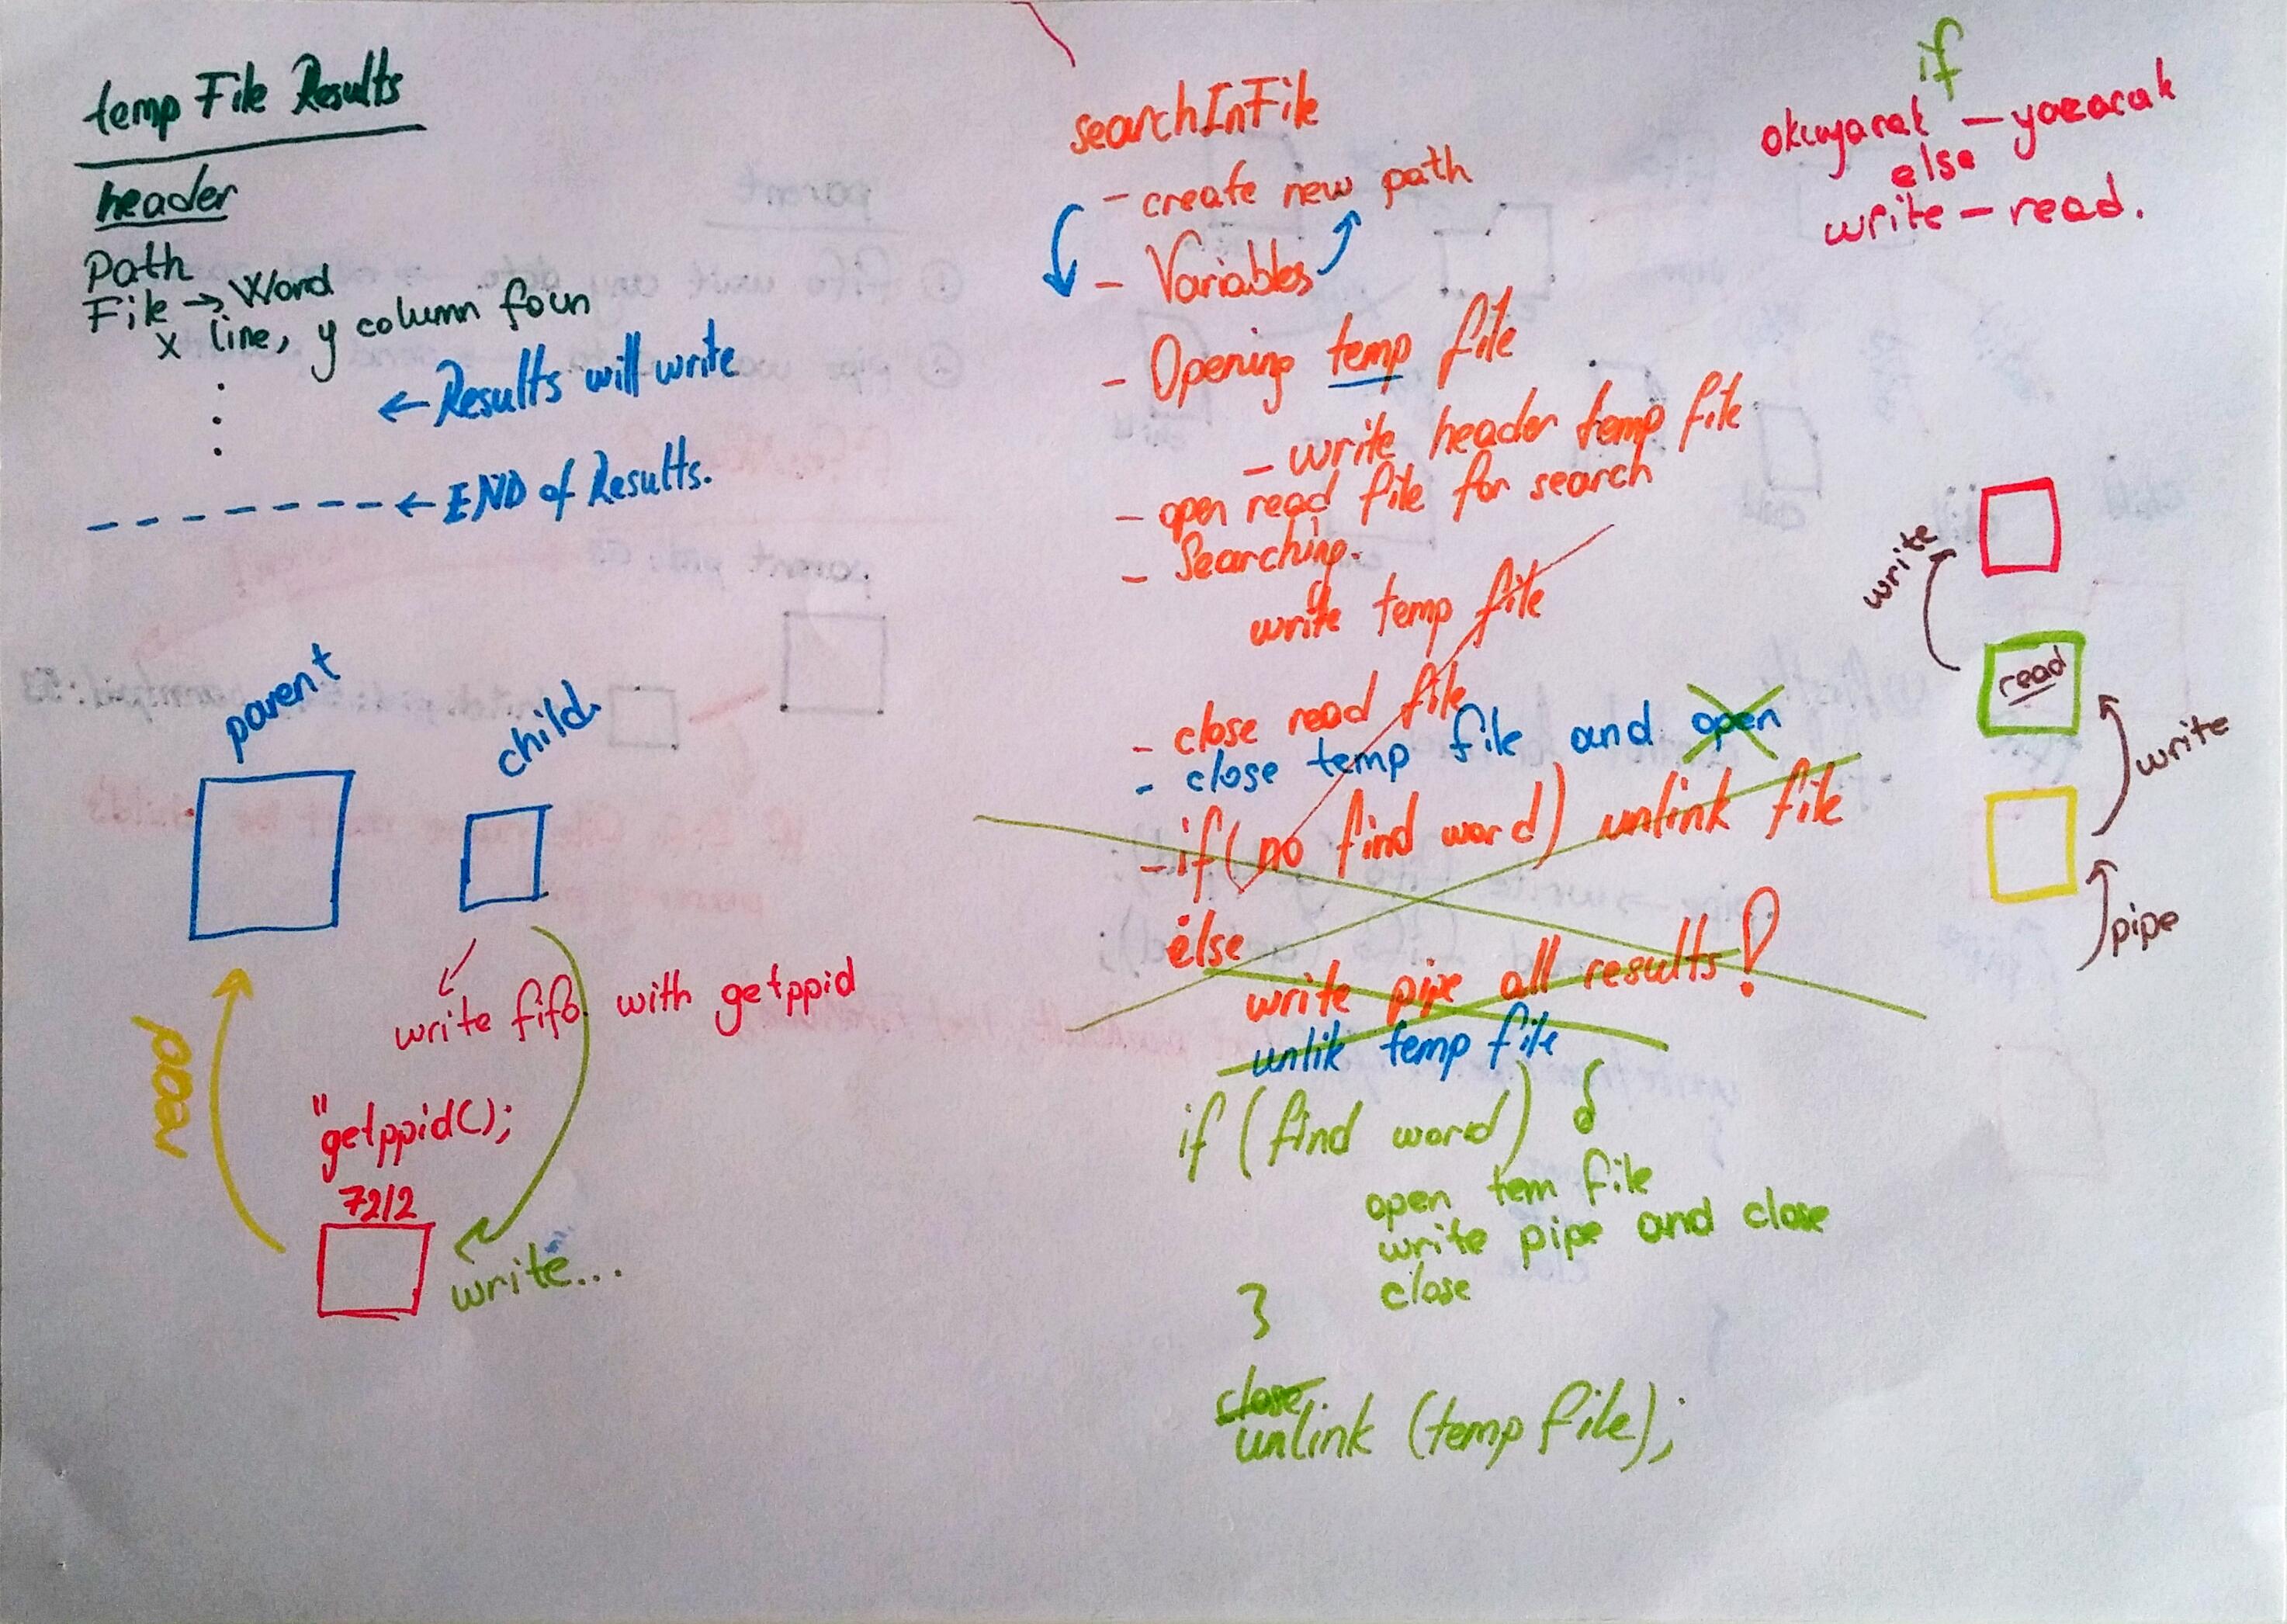 temp File Results
header
Path
File → Word
x line, y column foun
← Results will write
← END of Results.
parent
child
write fifo with getppid
read
"getppid();
7212
write...
searchInFile
- create new path
- Variables
- Opening temp file
- write header temp file
- open read file for search
- Searching.
write temp file
- close read file
- close temp file and open
- if (no find word) unlink file
else
write pipe all results!
unlik temp file
if (find word) {
open tem file
write pipe and close
close
}
close
unlink (temp file);
if
okuyarak - yazarak
else
write - read.
write
read
write
pipe